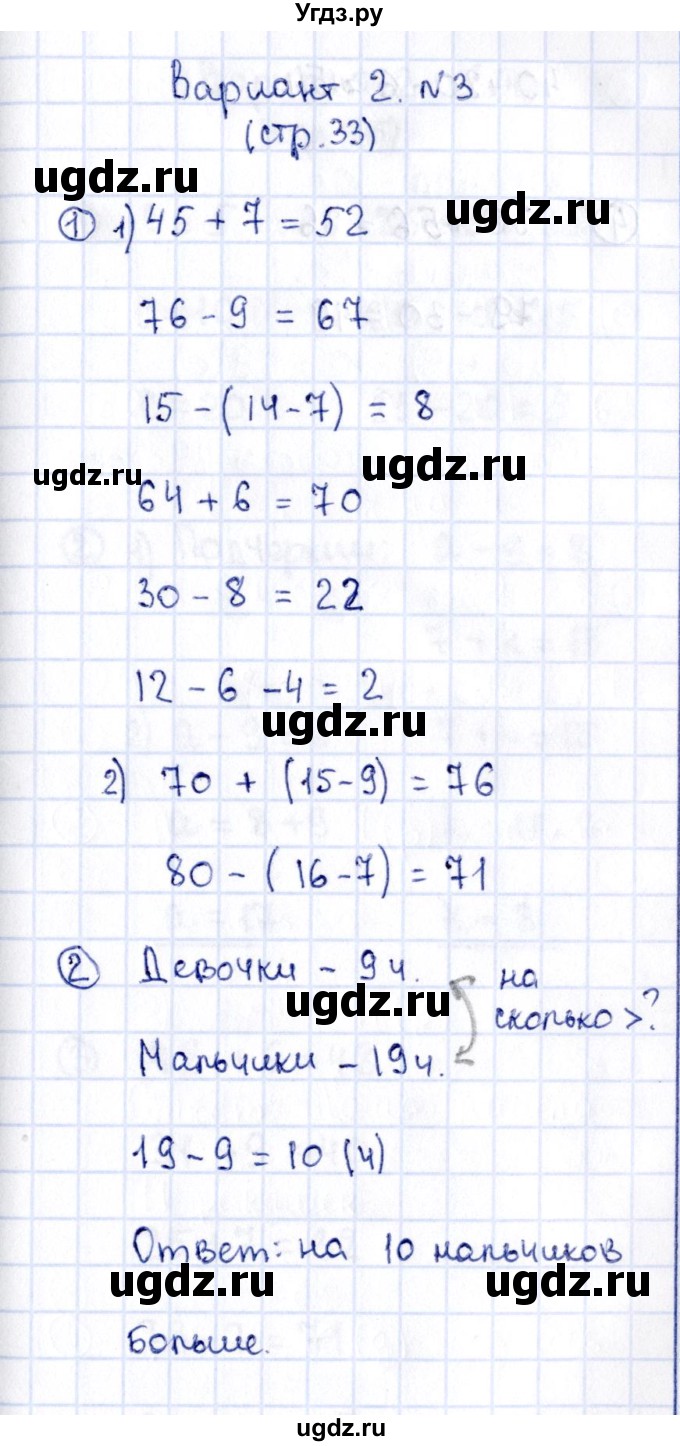 Угдз.ру
Вариант 2. №3
(стр.33)
ugdz.ru
ugdz.ru
① 1) 45 + 7 = 52
76 - 9 = 67
15 - (14 - 7) = 8
ugdz.ru
ugdz.ru
64 + 6 = 70
30 - 8 = 22
12 - 6 - 4 = 2
ugdz.ru
2) 70 + (15 - 9) = 76
80 - (16 - 7) = 71
② Девочки - 9 ч.
на
ugdz.ru
сколько >?
Мальчики - 19 ч.
19 - 9 = 10 (ч)
Ответ: на 10 мальчиков
ugdz.ru
ugdz.ru
больше.
ugdz.ru